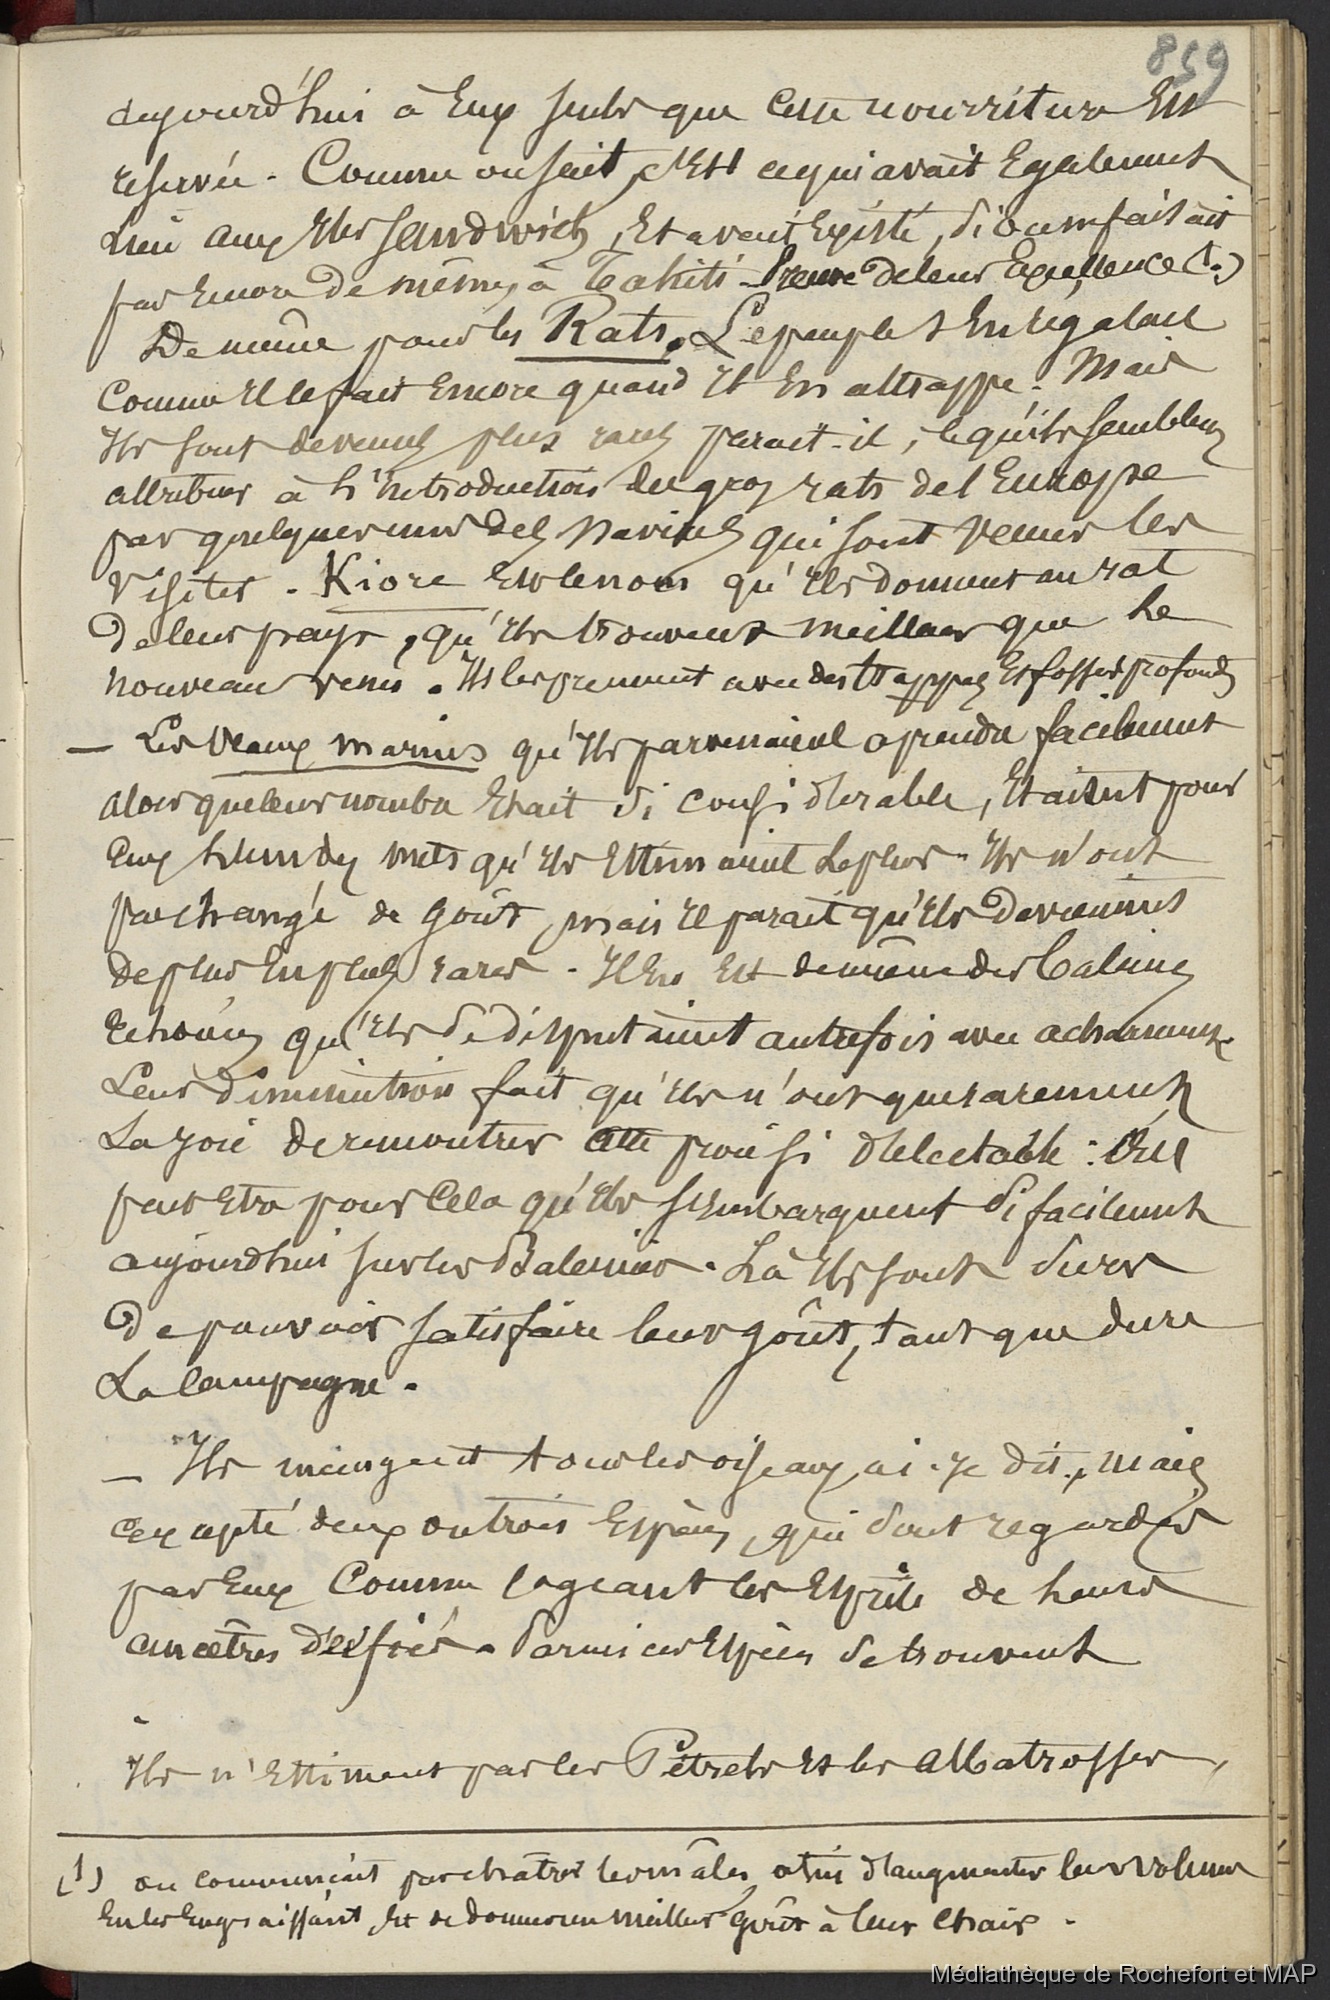 859
aujourd'hui à Eux seuls que cette nourriture Est
réservée. Comme on sait, c'Est ce qui avait Egalement
Lieu aux Iles Sandwich, Et avait Existé, si on ne faisait
pas Encore de même, à Tahiti. Preuve de leur Excellence (1.)
De même pour les Rats. Le peuple s'En régalait
Comme Il le fait Encore quand Il En attrappe. Mais
Ils sont devenus plus rares parait-il, ce qu'ils semblent
attribuer à l'Introduction des gros rats de l'Europe
par quelques uns des Navires qui sont venus les
Visiter. Kiore Est le nom qu'Ils donnent au rat
de leur pays, qu'Ils trouvent meilleur que le
nouveau venu. Ils les prennent avec des trappes Et fosses profondes
— Les Veaux marins qu'Ils parvenaient à prendre facilement
alors que leur nombre Etait si considérable, Etaient pour
Eux l'un des mets qu'Ils Estimaient Le plus. Ils n'ont
pas changé de goût, mais Il parait qu'Ils deviennent
de plus En plus rares. Il En Est de même des Baleines
Echouées qu'Ils se disputaient autrefois avec acharnement.
Leur diminution fait qu'Ils n'ont que rarement
La joie de rencontrer cette proie si délectable : C'Est
peut Etre pour Cela qu'Ils s'Embarquent si facilement
aujourd'hui sur les Baleiniers. Là Ils sont surs
De pouvoir satisfaire leur goût, tant que dure
La Campagne.
— Ils mangent tous les oiseaux, ai-je dit, mais
Excepté deux ou trois Espèces, qui sont regardées
par Eux Comme logeant les Esprits de leurs
ancêtres déifiés. Parmi ces Espèces se trouvent
Ils n'Estiment pas les Pétrels Et les Albatrosses,
(1) on commençait par châtrer les mâles, afin d'augmenter leur volume
En les Engraissant, Et de donner un meilleur goût à leur Chair.
Médiathèque de Rochefort et MAP